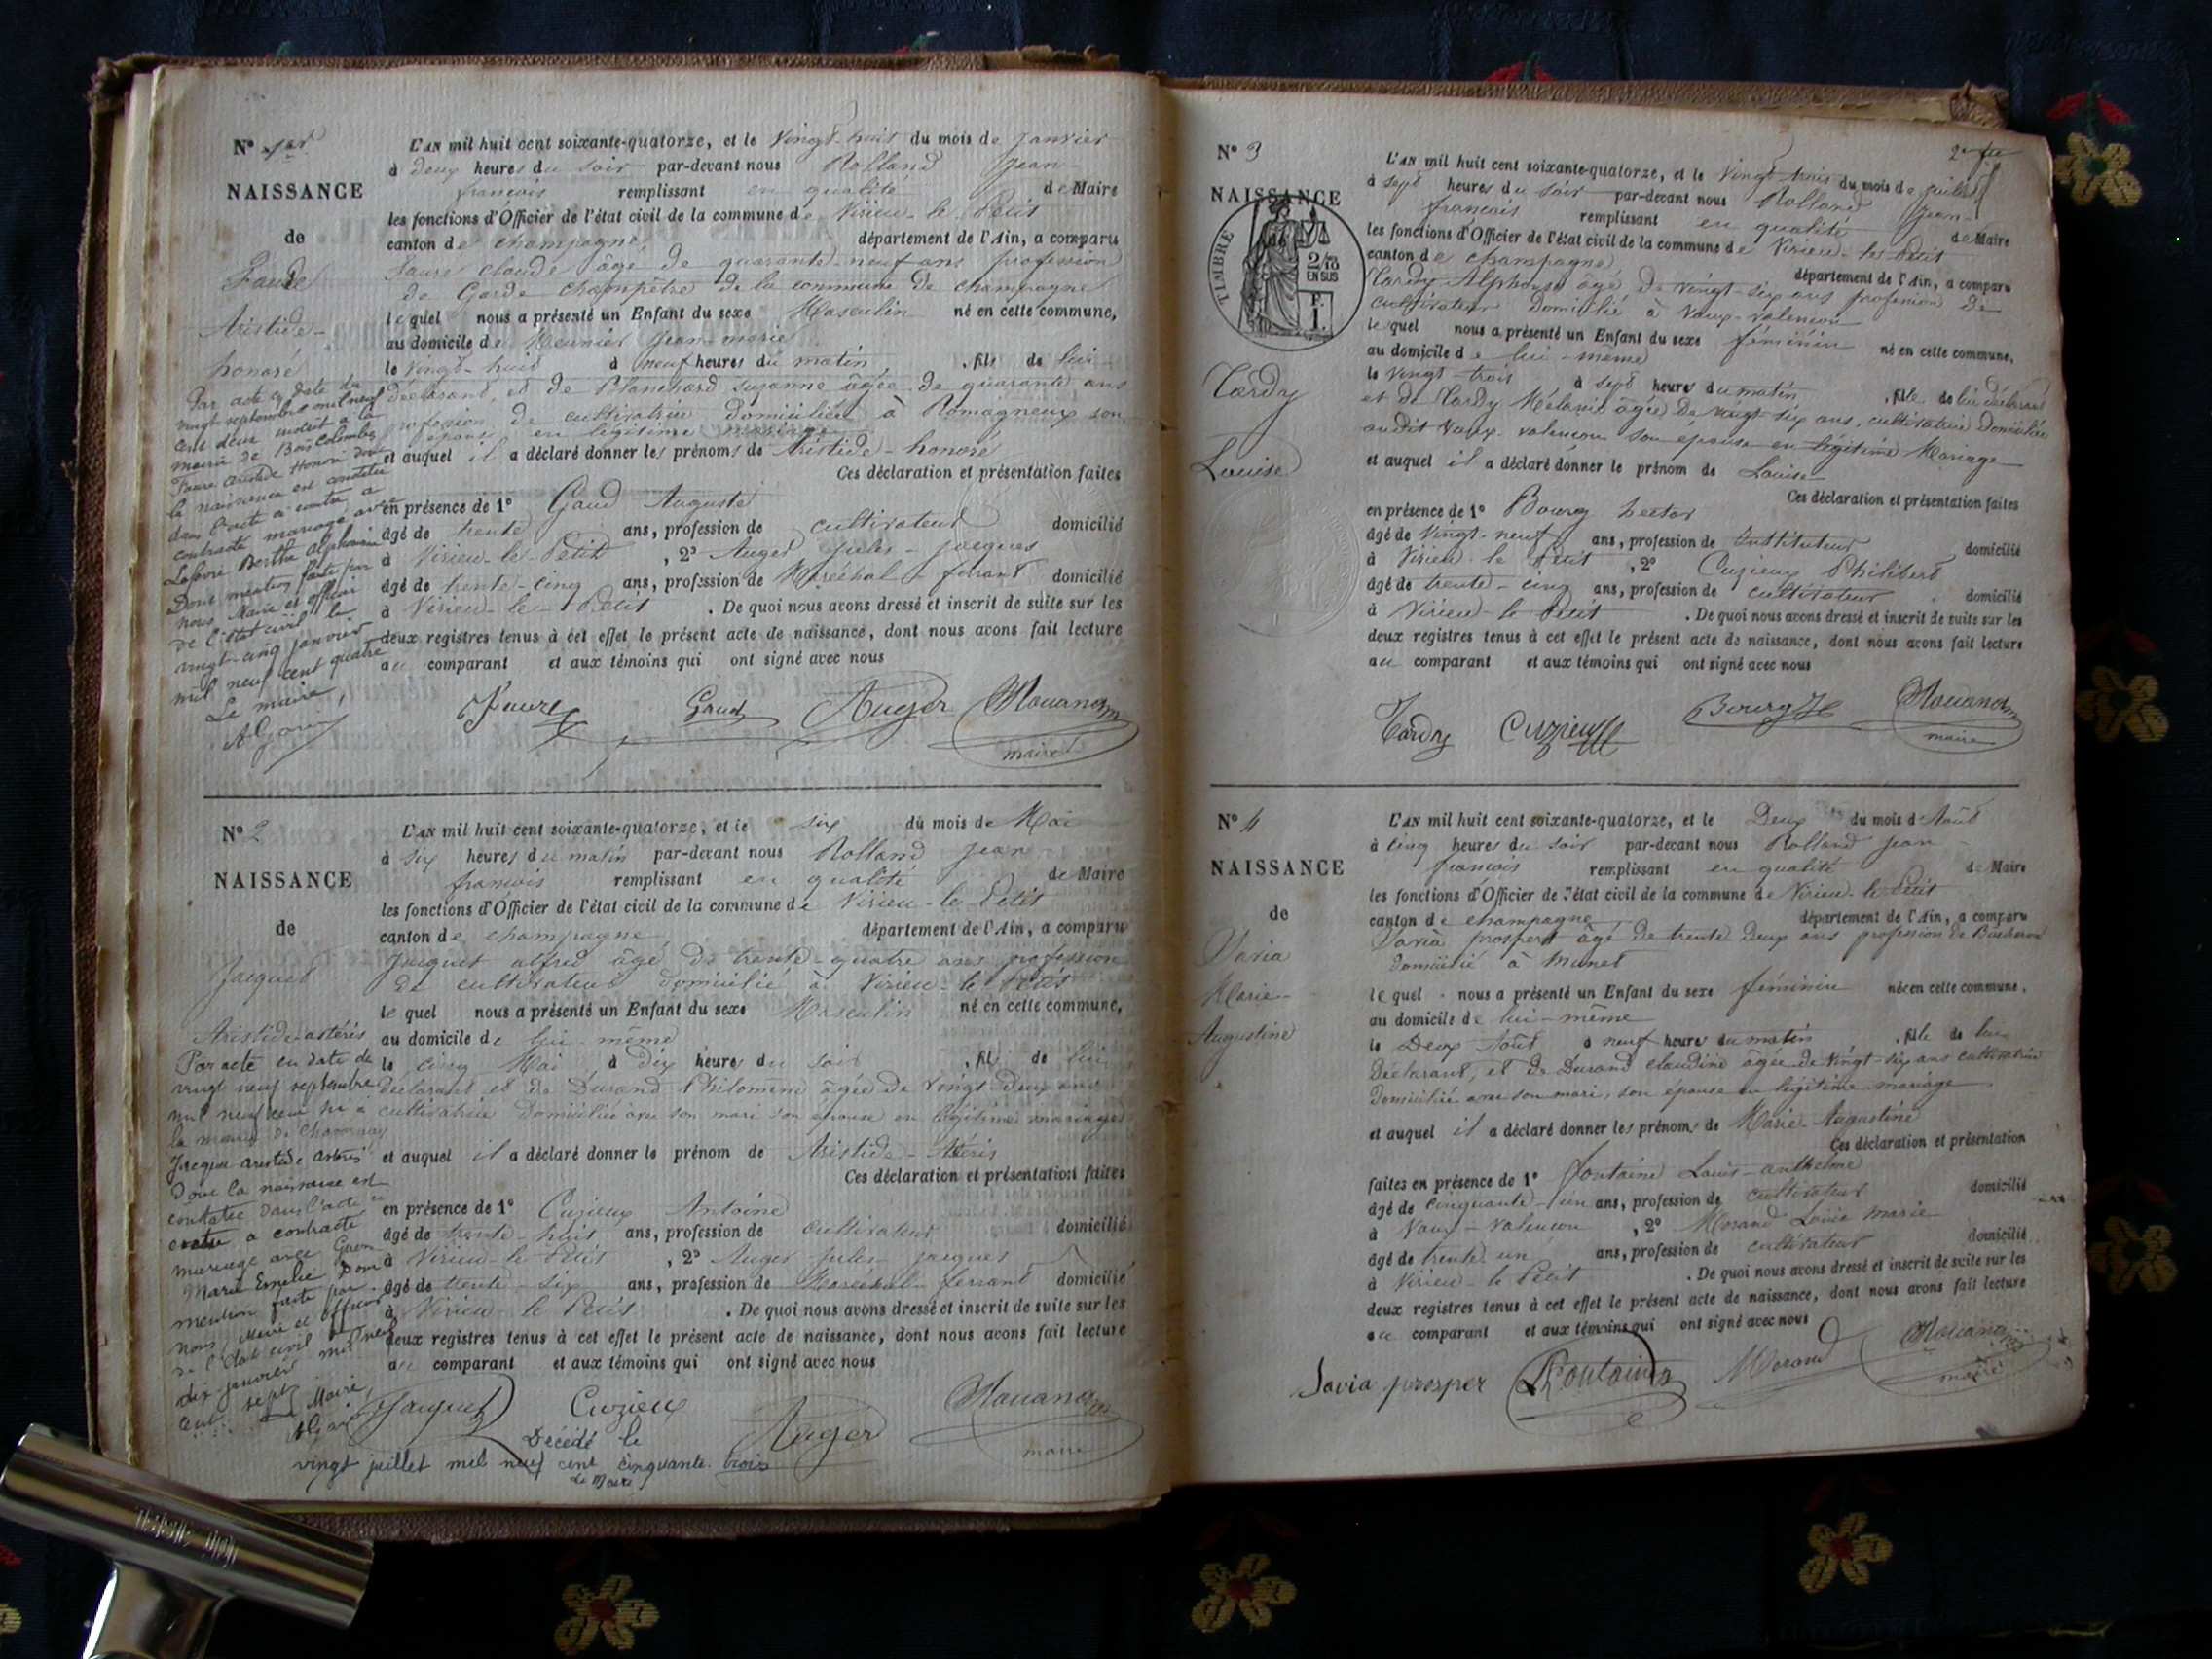 N° 1er
NAISSANCE
de
Faure
Aristide-
honoré
L'AN mil huit cent soixante-quatorze, et le Vingt-huit du mois de Janvier
à deux heures du soir par-devant nous Rolland Jean-
françois remplissant en qualité de Maire
les fonctions d'Officier de l'état civil de la commune de Virieu-le-Petit
canton de champagne, département de l'Ain, a comparu
Faure claude âgé de quarante-neuf ans profession
de Garde champêtre de la commune de champagne
lequel nous a présenté un Enfant du sexe Masculin né en cette commune,
au domicile de Meunier Jean-marie
le vingt-huit à neuf heures du matin, fils de lui
déclarant, et de Blanchard suzanne âgée de quarante ans
profession de cultivatrice domiciliée à Romagneux son
épouse en légitime mariage
et auquel il a déclaré donner les prénoms de Aristide-honoré
Ces déclaration et présentation faites
en présence de 1° Gaud Auguste
âgé de trente ans, profession de cultivateur domicilié
à Virieu-le-Petit, 2° Auger jules-jacques
âgé de trente-cinq ans, profession de Maréchal-ferrant domicilié
à Virieu-le-Petit. De quoi nous avons dressé et inscrit de suite sur les
deux registres tenus à cet effet le présent acte de naissance, dont nous avons fait lecture
au comparant et aux témoins qui ont signé avec nous
Faure Gaud Auger
maire
Par acte en date du
vingt septembre mil neuf
cent deux inscrit à la
mairie de Bois Colombes
Faure Aristide Honoré dont
la naissance est constatée
dans l'acte ci-contre a
contracté mariage avec
Lefèvre Berthe Alphonsine
Dont mention faite par
nous Maire et officier
de l'état civil le
vingt-cinq janvier
mil neuf cent quatre
Le maire,
N° 2
NAISSANCE
de
Jacquet
Aristide-astéris
L'AN mil huit cent soixante-quatorze, et le six du mois de Mai
à six heures du matin par-devant nous Rolland Jean-
françois remplissant en qualité de Maire
les fonctions d'Officier de l'état civil de la commune de Virieu-le-Petit
canton de champagne département de l'Ain, a comparu
Jacquet alfred âgé de trente-quatre ans profession
de cultivateur domicilié à Virieu-le-Petit
lequel nous a présenté un Enfant du sexe Masculin né en cette commune,
au domicile de lui-même
le cinq Mai à dix heures du soir, fils de lui
déclarant et de Durand Philomène âgée de vingt deux ans
cultivatrice domiciliée avec son mari son épouse en légitime mariage
et auquel il a déclaré donner le prénom de Aristide-Astéris
Ces déclaration et présentation faites
en présence de 1° Cuzieux Antoine
âgé de trente-huit ans, profession de cultivateur domicilié
à Virieu-le-Petit, 2° Auger jules-jacques
âgé de trente-six ans, profession de Maréchal-ferrant domicilié
à Virieu-le-Petit. De quoi nous avons dressé et inscrit de suite sur les
deux registres tenus à cet effet le présent acte de naissance, dont nous avons fait lecture
au comparant et aux témoins qui ont signé avec nous
Jacquet Cuzieux Auger
maire
Par acte en date de
vingt neuf septembre
mil neuf cent six à
la mairie de
Jacquet aristide astéris
dont la naissance est
contatée dans l'acte ci
contre a contracté
mariage avec
Marie Emélie Dont
mention faite par
nous Maire et officier
de l'état civil le
dix janvier mil neuf
cent sept
Maire,
Décédé le
vingt juillet mil neuf cent cinquante trois
Le Maire
2e
N° 3
NAISSANCE
TIMBRE
2/10
EN SUS
F.
1.
Tardy
Louise
L'AN mil huit cent soixante-quatorze, et le Vingt trois du mois de juillet
à sept heures du soir par-devant nous Rolland Jean-
françois remplissant en qualité de Maire
les fonctions d'Officier de l'état civil de la commune de Virieu-le-Petit
canton de champagne département de l'Ain, a comparu
Tardy Alphonse âgé de vingt-six ans profession de
cultivateur domicilié à Vaux-valencon
lequel nous a présenté un Enfant du sexe féminin né en cette commune,
au domicile de lui-même
le vingt-trois à sept heures du matin, fille de lui déclarant
et de Tardy Mélanie âgée de vingt-six ans, cultivatrice domiciliée
audit Vaux-valencon son épouse en légitime Mariage
et auquel il a déclaré donner le prénom de Louise
Ces déclaration et présentation faites
en présence de 1° Bourg hector
âgé de vingt-neuf ans, profession de Instituteur domicilié
à Virieu-le-Petit, 2° Cuzieux Philibert
âgé de trente-cinq ans, profession de cultivateur domicilié
à Virieu-le-Petit. De quoi nous avons dressé et inscrit de suite sur les
deux registres tenus à cet effet le présent acte de naissance, dont nous avons fait lecture
au comparant et aux témoins qui ont signé avec nous
Tardy Cuzieux Bourg H
maire
N° 4
NAISSANCE
de
Savia
Marie-
Augustine
L'AN mil huit cent soixante-quatorze, et le Deux du mois d'Août
à cinq heures du soir par-devant nous Rolland Jean-
françois remplissant en qualité de Maire
les fonctions d'Officier de l'état civil de la commune de Virieu-le-Petit
canton de champagne département de l'Ain, a comparu
Savia prosper âgé de trente deux ans profession de Bucheron
domicilié à Munet
lequel nous a présenté un Enfant du sexe féminin née en cette commune,
au domicile de lui-même
le Deux Août à neuf heures du matin, fille de lui
déclarant, et de Durand claudine âgée de vingt-six ans cultivatrice
domiciliée avec son mari, son épouse en légitime mariage
et auquel il a déclaré donner les prénoms de Marie-Augustine
Ces déclaration et présentation
faites en présence de 1° fontaine Louis-anthelme
âgé de cinquante-un ans, profession de cultivateur domicilié
à Vaux-Valencon, 2° Morand Louis marie
âgé de trente un ans, profession de cultivateur domicilié
à Virieu-le-Petit. De quoi nous avons dressé et inscrit de suite sur les
deux registres tenus à cet effet le présent acte de naissance, dont nous avons fait lecture
au comparant et aux témoins qui ont signé avec nous
Savia prosper Fontaine Morand
maire